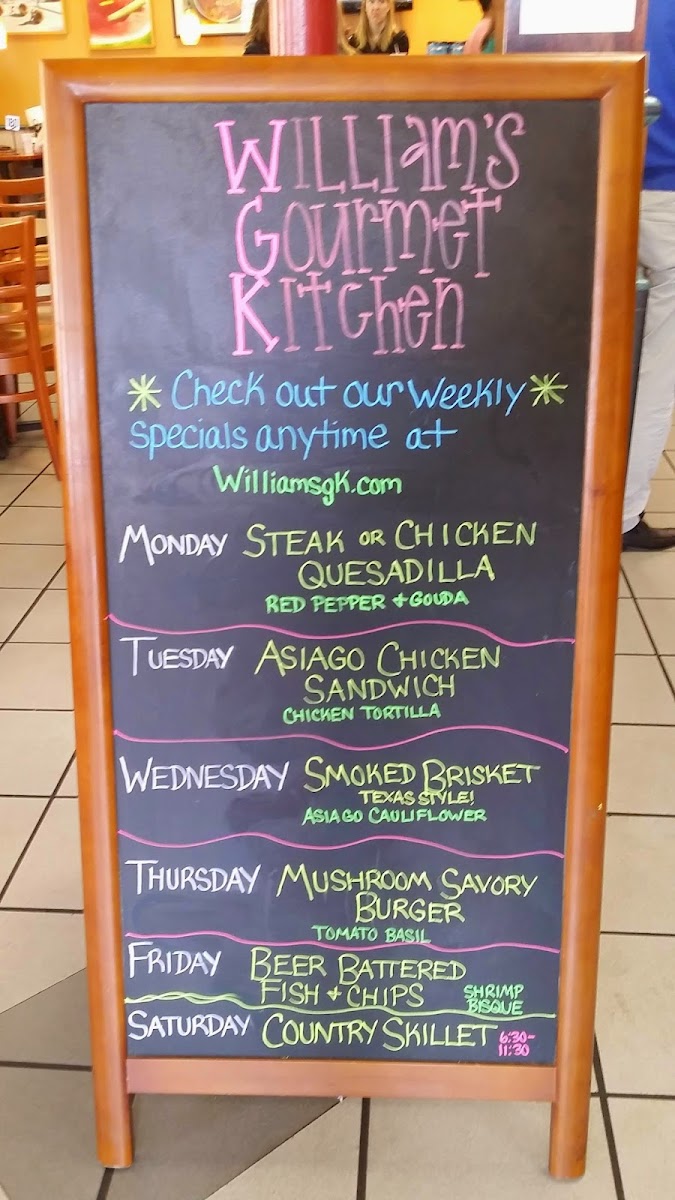 William's
Gourmet
Kitchen
Check out our weekly
specials anytime at
WilliamsgK.com
MONDAY STEAK OR CHICKEN
QUESADILLA
RED PEPPER + GOUDA
TUESDAY ASIAGO CHICKEN
SANDWICH
CHICKEN TORTILLA
WEDNESDAY SMOKED BRISKET
TEXAS STYLE!
ASIAGO CAULIFLOWER
THURSDAY MUSHROOM SAVORY
BURGER
TOMATO BASIL
FRIDAY BEER BATTERED
FISH + CHIPS SHRIMP
BISQUE
SATURDAY COUNTRY SKILLET 6:30-
11:30